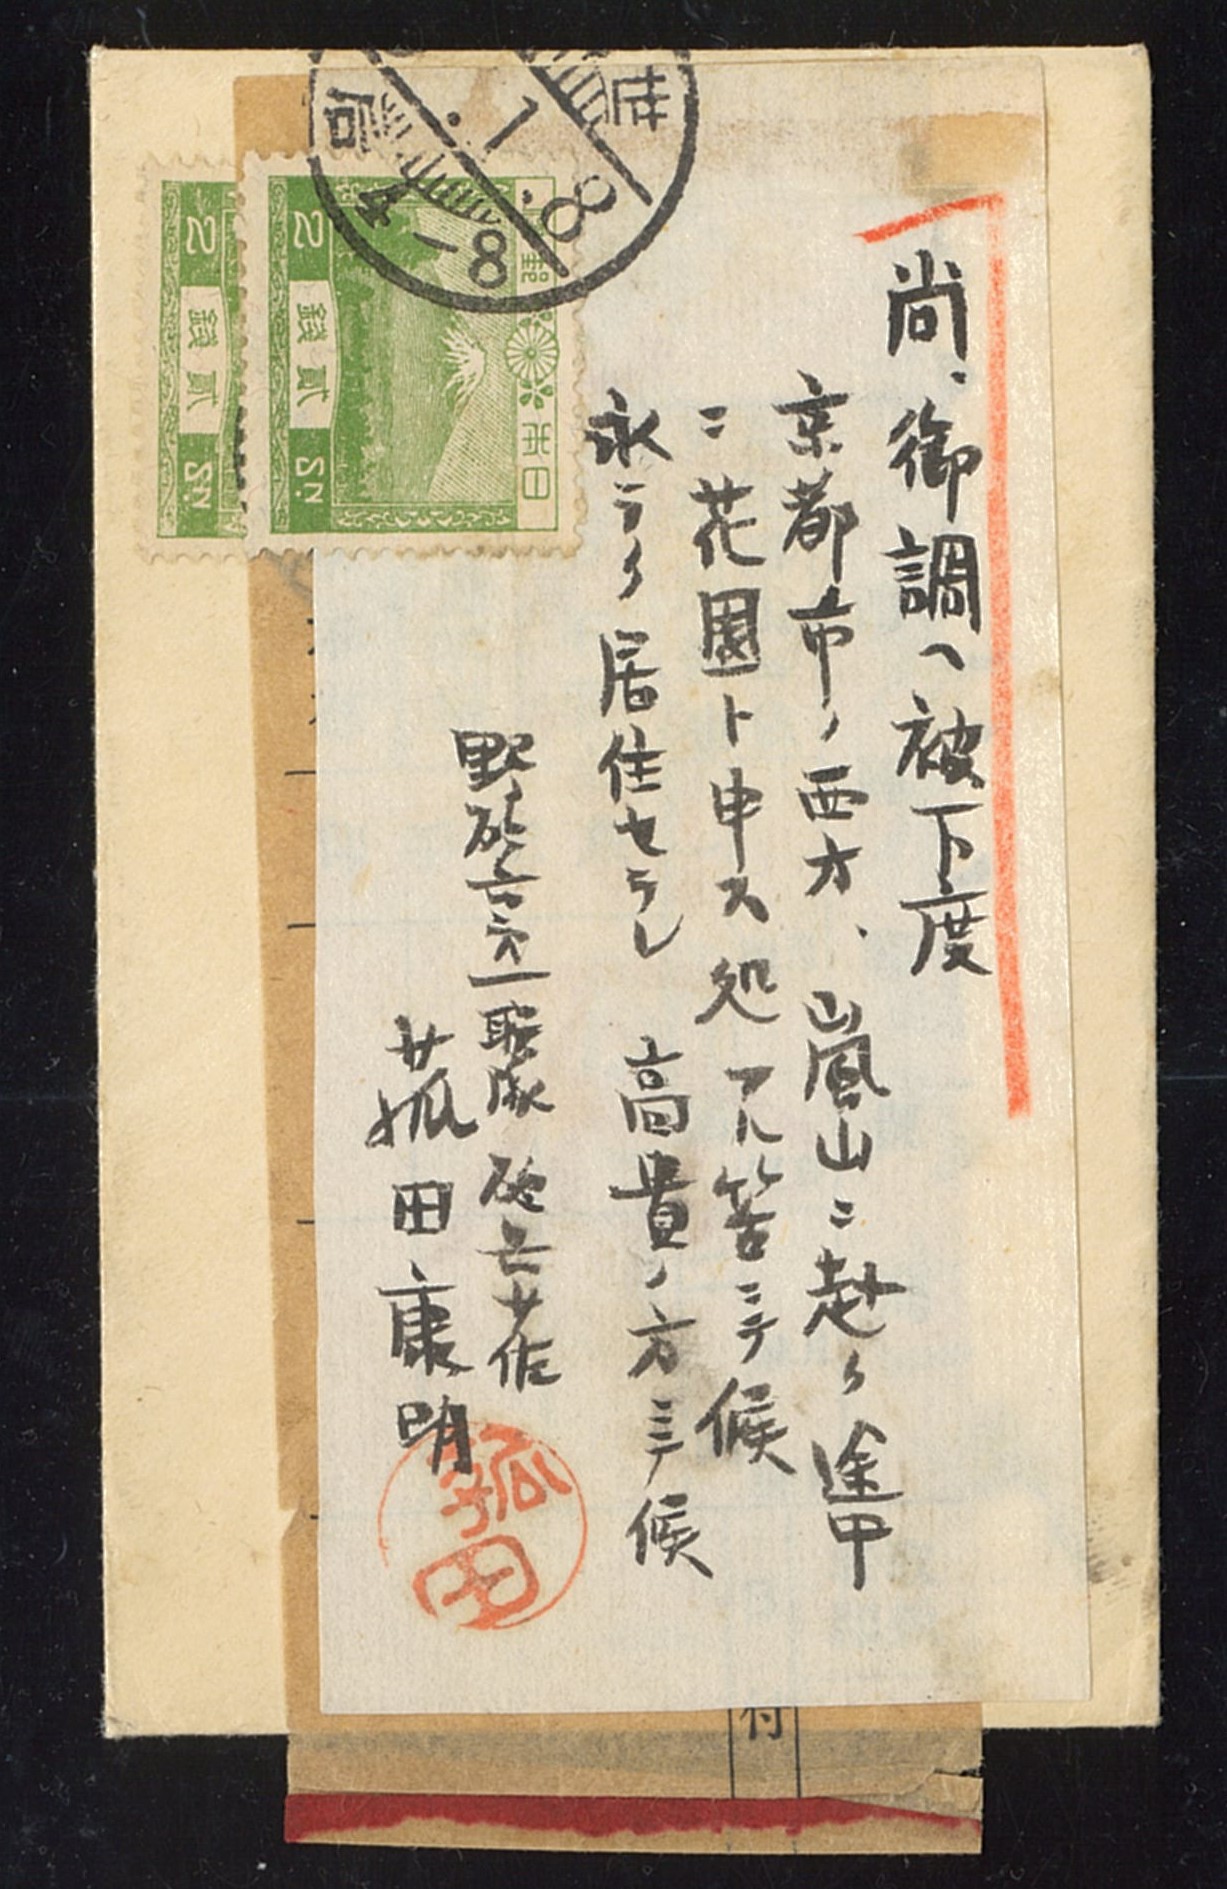 尚、御調ヘ被下度
京都市ノ西方、嵐山ニ赴ク途中
ニ花園ト申ス処アル筈ニテ候
永ラク居住セラレ 高貴ノ方ニテ候
野砲兵第一聯隊 砲兵少佐
菰田康明
菰田
日本 郵
2 銭貳 SN.
2 銭貳 SN.
.1.8
4-8
付